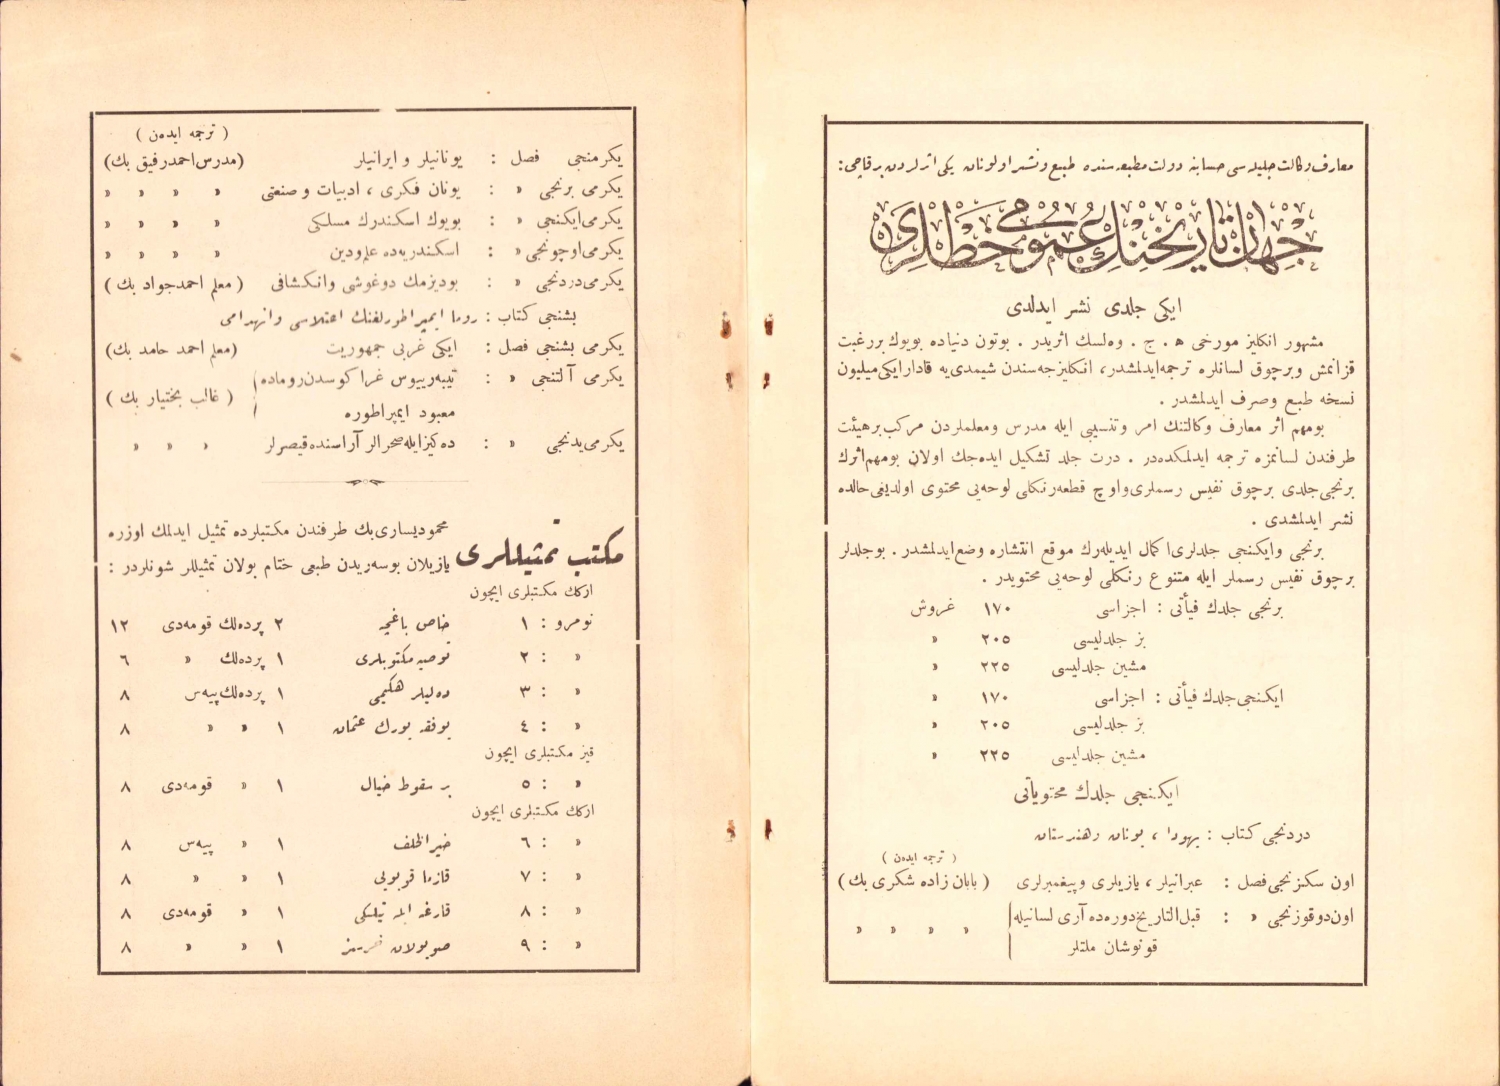 معارف وکالت جلیله سی حسابنه دولت مطبعه سنده طبع ونشر اولونان یکی اثرلردن برقاچی :
جهان تاریخنك عمومی خطلری
ایکی جلدی نشر ایدلدی
مشهور انکلیز مورخی ﻫ . ج . وەلسك اثریدر . بوتون دنیاده بویوك بررغبت
قزانمش وبرچوق لسانلره ترجمه‌ایدلمشدر، انکلیزجه‌سندن شیمدی‌یه قادارایکی‌میلیون
نسخه طبع وصرف ایدلمشدر .
بومهم اثر معارف وکالتنك امر وتنسیبی ایله مدرس ومعلملردن مرکب برهیئت
طرفندن لسانمزه ترجمه ایدلمکده‌در . درت جلد تشکیل ایده‌جك اولان بومهم‌اثرك
برنجی‌جلدی برچوق نفیس رسملری‌واوچ قطعه‌رنکلی لوحه‌یی محتوی اولدیغی‌حالده
نشر ایدلمشدی .
برنجی وایکنجی جلدلری‌اکمال ایدیله‌رك موقع انتشاره وضع‌ایدلمشدر . بوجلدلر
برچوق نفیس رسملر ایله متنوع رنکلی لوحه‌یی محتویدر .
برنجی جلدك فیأتی : اجزاسی ١٧٠ غروش
بز جلدلیسی ٢٠٥ »
مشین جلدلیسی ٢٢٥ »
ایکنجی‌جلدك فیأتی : اجزاسی ١٧٠ »
بز جلدلیسی ٢٠٥ »
مشین جلدلیسی ٢٢٥ »
ایکنجی جلدك محتویاتی
دردنجی کتاب : یهودا ، یونان وهندستان
( ترجمه ایده‌ن )
اون سکزنجی‌فصل : عبرانیلر ، یازیلری وپیغمبرلری ( بابان زاده شکری بك )
اون‌دوقوزنجی » : قبل‌التاریخ‌دوره‌ده آری لسانیله » » » »
قونوشان ملتلر
( ترجمه ایده‌ن )
یکرمنجی فصل : یونانیلر و ایرانیلر (مدرس‌احمدرفیق بك)
یکرمی برنجی » : یونان فکری ، ادبیات و صنعتی » » » »
یکرمی‌ایکنجی » : بویوك اسکندرك مسلکی » » » »
یکرمی‌اوچونجی » : اسکندریه‌ده علم‌ودین » » » »
یکرمی‌دردنجی » : بودیزمك دوغوشی وانکشافی ( معلم احمدجواد بك )
بشنجی کتاب : روما ایمپراطورلغنك اعتلاسی وانهدامی
یکرمی بشنجی فصل : ایکی غربی جمهوریت (معلم احمد حامد بك)
یکرمی آلتنجی » : تیبه‌رییوس غراکوسدن‌روماده ( غالب بختیار بك )
معبود ایمپراطوره
یکرمی‌یدنجی » : ده‌کیزایله‌صحرالر آراسنده‌قیصرلر » » »
مکتب تمثیللری محمودیساری‌بك طرفندن مکتبلرده تمثیل ایدلمك اوزره
یازیلان بوسه‌ریدن طبعی ختام بولان تمثیللر شونلردر :
ارکك مکتبلری ایچون
نومرو : ١ خاص باغچه ٢ پرده‌لك قومه‌دی ١٢
» : ٢ توصیه مکتوبلری ١ پرده‌لك » ٦
» : ٣ ده‌لیلر هکیمی ١ پرده‌لك‌پیه‌س ٨
» : ٤ یوفقه یورك عثمان ١ » » ٨
قیز مکتبلری ایچون
» : ٥ بر سقوط خیال ١ » قومه‌دی ٨
ارکك مکتبلری ایچون
» : ٦ خیرالخلف ١ » پیه‌س ٨
» : ٧ قازما قویویی ١ » » ٨
» : ٨ قارغه ایله تیلکی ١ » قومه‌دی ٨
» : ٩ صویولان خرسز ١ » » ٨